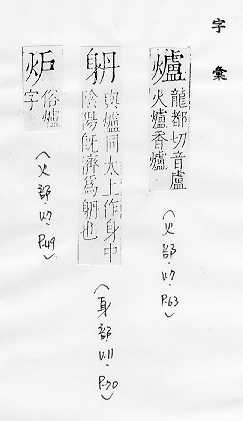 字彙
爐
龍都切音盧
火爐香爐
(火部.V.7
P.63)
躬
與爐同太上作身中
陰陽旣濟爲躬也
(身部.V.11
P.70)
炉
俗爐
字
(火部.V.7
P.49)